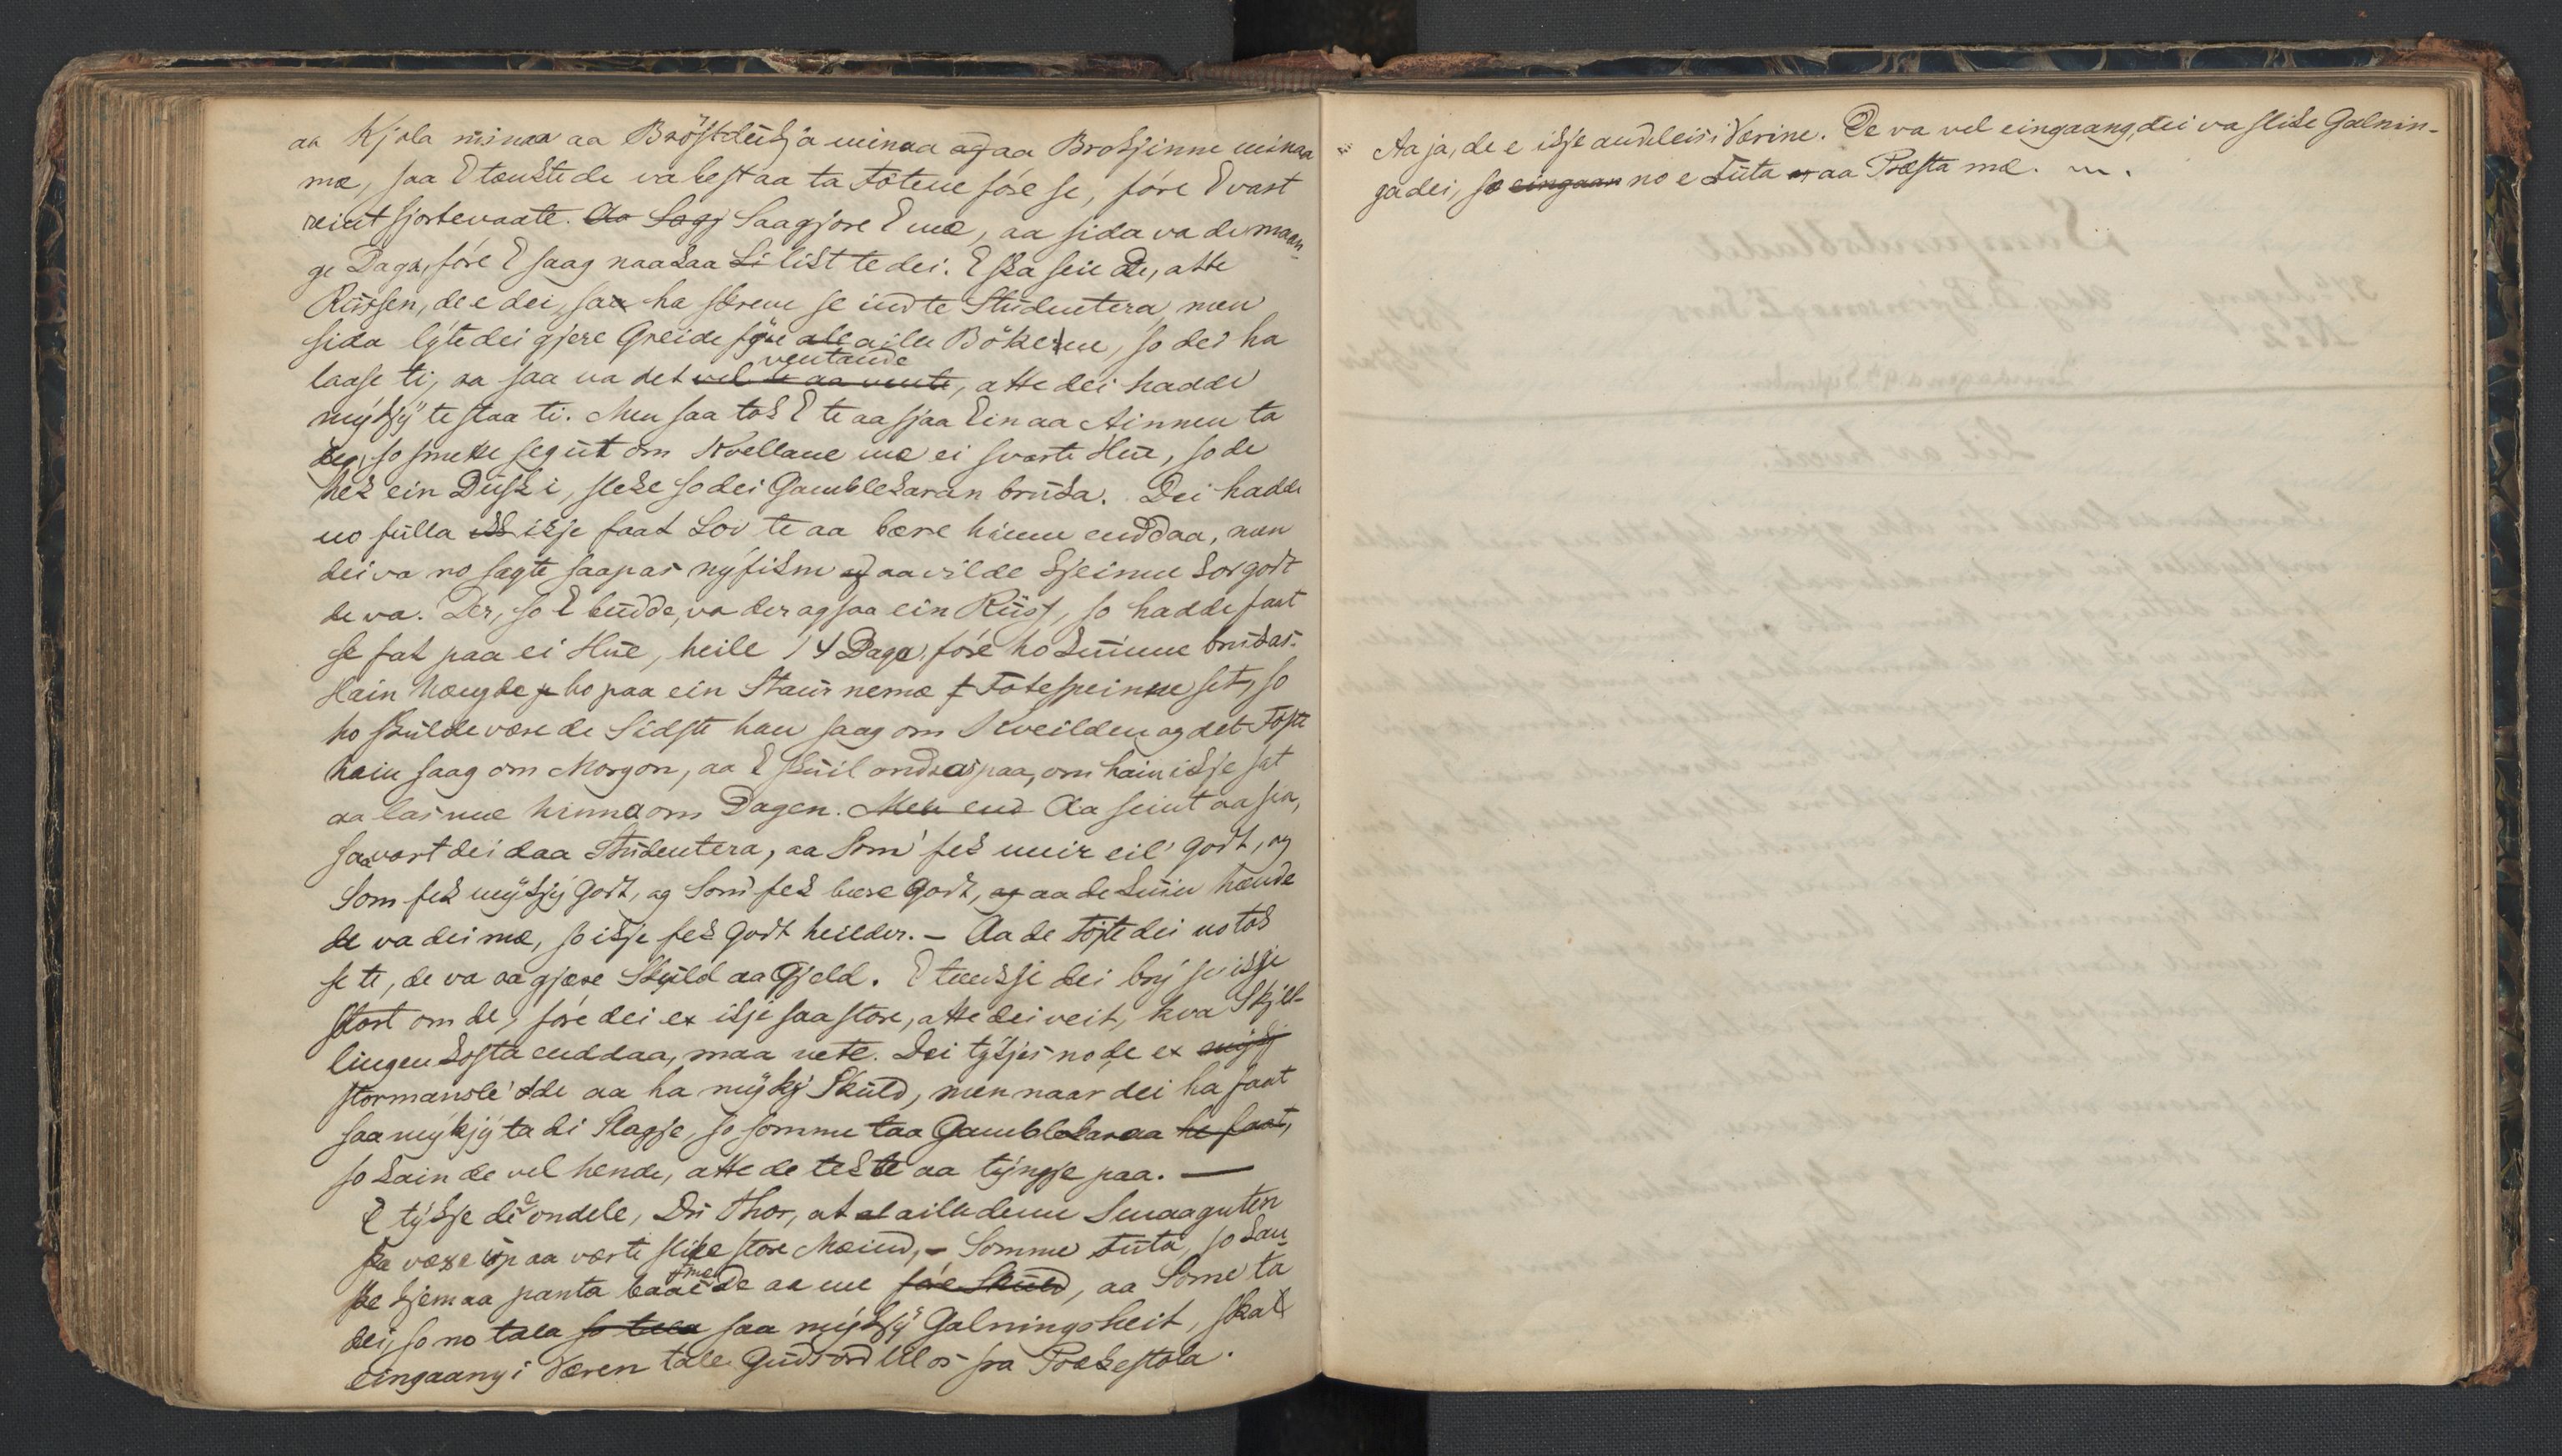 aa Kjola minaa aa Bröstdukja minaa ~~ag~~ aa Brokjinne minaa
mæ, saa E tænkte de va best aa ta Føtene føre se, føre E vart
reint sjortevaate. ~~Aa Sagj~~ Saagjore E mæ, aa sida va de maan-
ge Daga, føre E saag naakaa ~~Li~~ likt te dei. E ska seie De, atte
Russen, de e dei, saa ha skreve se ind te Studentera, men
sida lyte dei gjere Greide före ~~all~~ aille Bökene, so dei ha
laase ti, aa saa va det ~~vel te aa vente~~ ventande, atte dei hadde
mykjy te staa ti. Men saa tok E te aa sjaa Ein aa Ainnen ta
dei, so smette seg ut om Kvellane mæ ei svarte Hue, so de
hek ein Dusk i, sleke so dei Gamblekaran bruka. Dei hadde
no fulla ~~ikk~~ ikje faat Lov te aa bære hinne enddaa, men
dei va no sagte saapas nyfikne ~~og~~ aa vilde kjeinne kor godt
de va. Der, so E budde, va der agsaa ein Russ, so hadde faat
se fat paa ei Hue, heile 14 Daga, føre ho kunne brukas.
Hain hængde ho paa ein Staur nemæ Føtespeinne set, so
ho skulde være de Sidste han saag om Kveilden ag det Føste
hain saag om Morgon, aa E skuil ondras paa, om hain ikje sat
aa las mæ hinna om Dagen. ~~Men end~~ Aa seint aa sea,
saa vart dei daa Studentera, aa Som' fek meir eil' godt, ag
Som fek mykjy godt, ag Som' fek bære godt, ~~ag~~ aa de kuin hænde
de va dei mæ, so ikje fek godt heilder. – Aa de Føste dei no tok
se te, de va aa gjære Skuld aa Gjeld. E tænkje dei bry se ikje
stort om de, føre dei ~~er~~ ikje saa store, atte dei veit, kva Skjil-
lingen kosta enddaa, maa vete. Dei tykjes no de er ~~mykj~~
stormansle' de aa ha mykjy Skuld, men naar dei ha faat
saa mykjy ta di Slagje, so somme taa Gamblekaraa ~~he faat~~,
so kain de vel hende, atte de tek te aa tyngje paa. —
E tykje de e ondele, Du Thor, at ~~al~~ aille denne Smaaguten
ska vækse op aa vørte slike store Mæind, – Somme Futa, so kan-
ske kjem aa panta baai de aa me ~~føre Skuld~~, aa Some ta
dei, so no tala ~~so tala~~ saa mykjy Galningsheit, skal
eingaang i Væren tale Guds ord til os fra Prækestola.
Aa ja, de e ikje andeleis i Verine. De va vel eingaang, dei va slike Galnin-
ga dei, so ~~eingaan~~ no e Futa ~~ag~~ aa Præsta mæ.